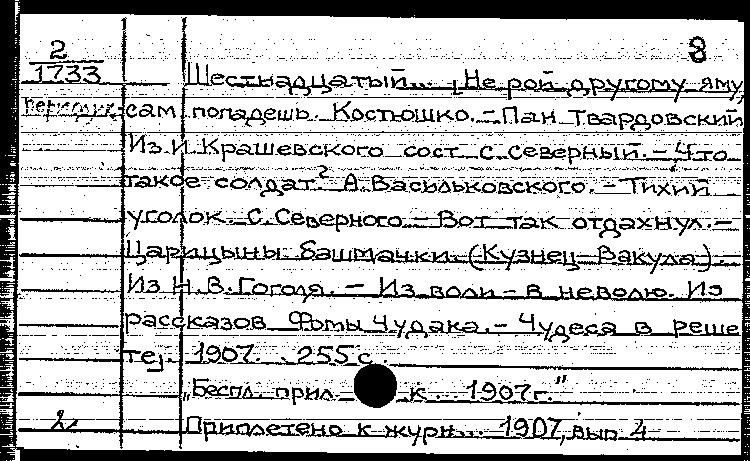 8
2
1733
Шестнадцатый... Не рой другому яму,
сам попадешь. Костюшко. - Пан Твардовский
Из И. Крашевского сост. С. Северный. - Что
такое солдат? А. Васильковского. - Тихий
уголок. С. Северного. - Вот так отдахнул. -
Царицыны башмачки. (Кузнец Вакула). -
Из Н. В. Гоголя. - Из воли - в неволю. Из
рассказов Фомы Чудака. - Чудеса в реше
те]. 1907. 255 с.
„Беспл. прил. к... 1907 г."
2 Приплетено к журн... 1907, вып. 4